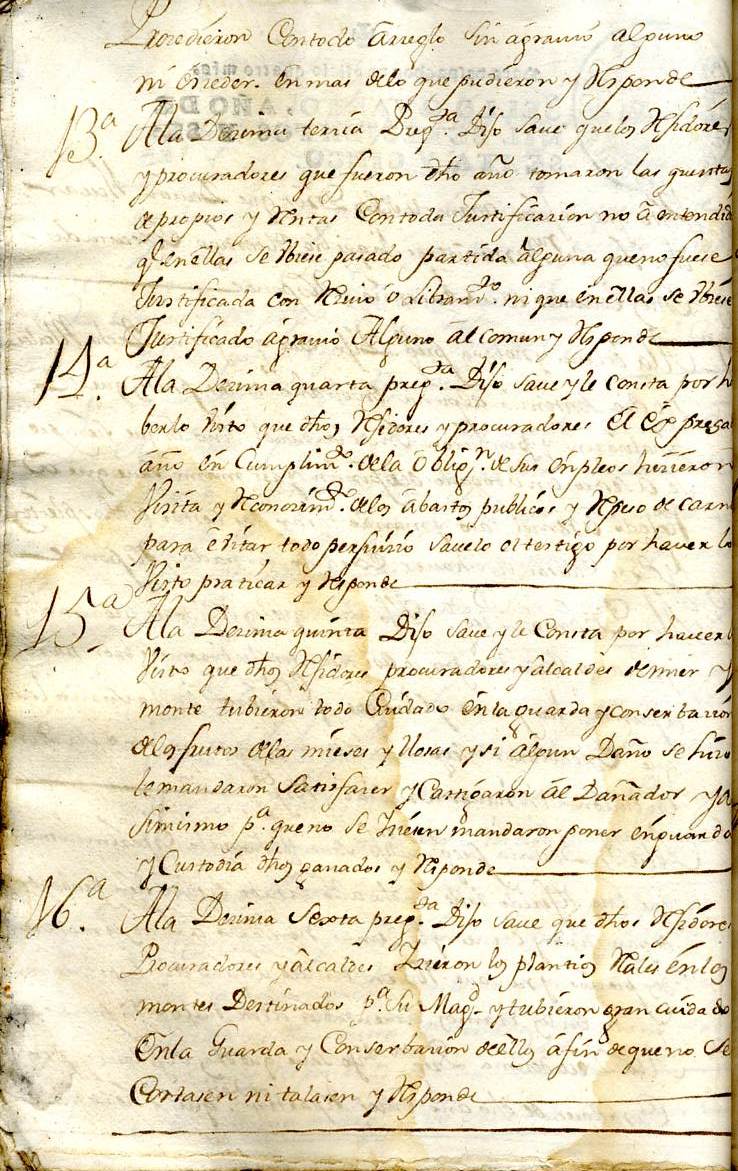 Procedieron Contodo arreglo sin agravio alguno
ni exceder. en mas delo que pudieron y Responde
13.ª Ala Dezima tercia Preg.ta Dijo save quelos Rejidores
y procuradores que fueron dho año tomaron las quentas
de propios y Rentas Contoda Justificazion no a entendido
q.e enellas se Hiciese pasado partida alguna queno fuese
Justificada con Rezivo o Libram.to ni que enellas se Hiciese
Justificado agravio Alguno al comun y Responde
14.ª Ala Dezima quarta preg.ta Dijo save y le consta por ha
berlo visto que dhos Rejidores y procuradores El Expresa
año en Cumplim.to dela Oblig.n de sus enpleos hizieron
Visita y Reconozim.to delos abastos publicos y Repeso de carn
para evitar todo perjuizio savelo el testigo por haverlo
visto praticar y Responde
15.ª Ala Dezima quinta Dijo save y le Consta por haver
visto que dhos Rejidores procuradores y alcaldes de mier y
monte tubieron todo Cuidado enla guarda y conserbazion
delos frutos delas mieses y Llosas y si algun Daño se hizo
le mandaron Satisfazer y Castigaron al Dañador y a
simismo p.a queno se hiziesen mandaron poner enguarda
y Custodia dhos ganados y Responde
16.ª Ala Dezima Sexta preg.ta Dijo save que dhos Rejidores
Procuradores y alcaldes hizieron los plantios Reales enlos
montes Destinados p.a Su Mag.d y tubieron gran cuidado
Enla Guarda y Conserbazion deellos afin dequeno Se
Cortasen ni talasen y Responde